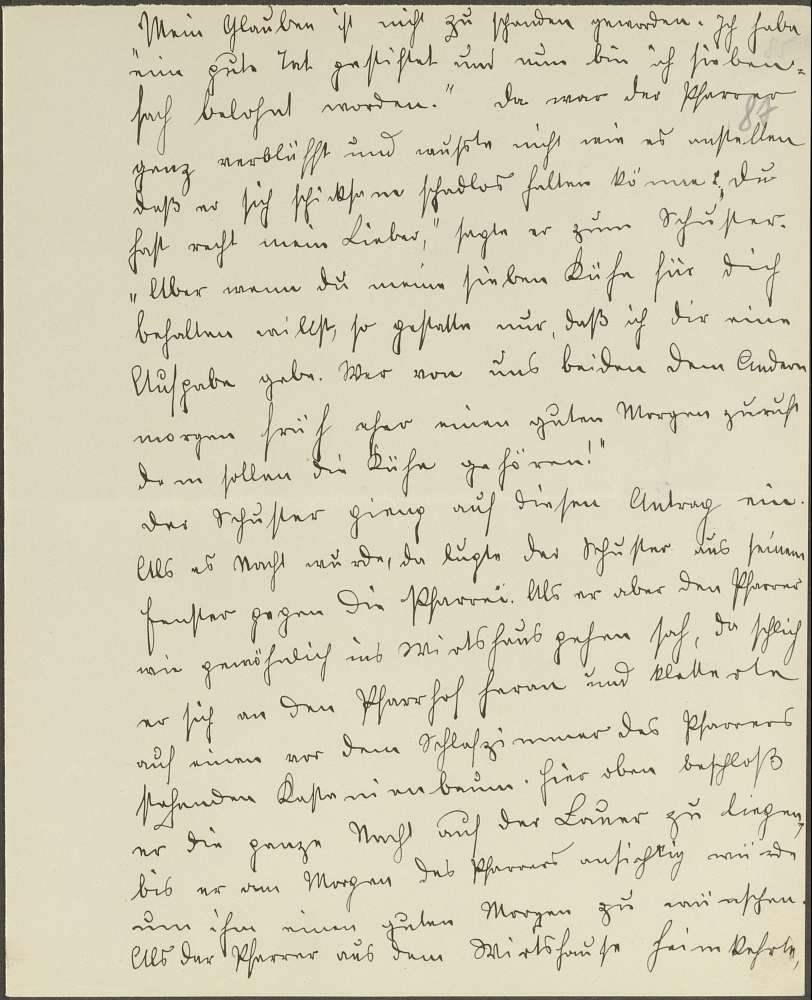 Mein Glauben ist nicht zu schanden geworden. Ich habe
eine gute Tat gestiftet und nun bin ich sieben-
fach belohnt worden." Da war der Pfarrer
87
ganz verblüfft und wußte nicht wie es anstellen
daß er sich schadlos halten könne: „Du
hast recht mein Lieber," sagte er zum Schuster.
„Aber wenn du meine sieben Kühe für dich
behalten willst, so gestatte nur, daß ich dir eine
Aufgabe gebe. Wer von uns beiden dem Andern
morgen früh eher einen guten Morgen zuruft
dem sollen die Kühe gehören!"
Der Schuster gieng auf diesen Antrag ein.
Als es Nacht wurde, da lugte der Schuster aus seinem
Fenster gegen die Pfarrei. Als er aber den Pfarrer
wie gewöhnlich ins Wirtshaus gehen sah, da schlich
er sich an den Pfarrhof heran und kletterte
auf einen vor dem Schlafzimmer des Pfarrers
stehenden Kastanienbaum. Hier oben beschloß
er die ganze Nacht auf der Lauer zu liegen,
bis er am Morgen des Pfarrers ansichtig würde
um ihm einen guten Morgen zu wünschen.
Als der Pfarrer aus dem Wirtshause heimkehrte,